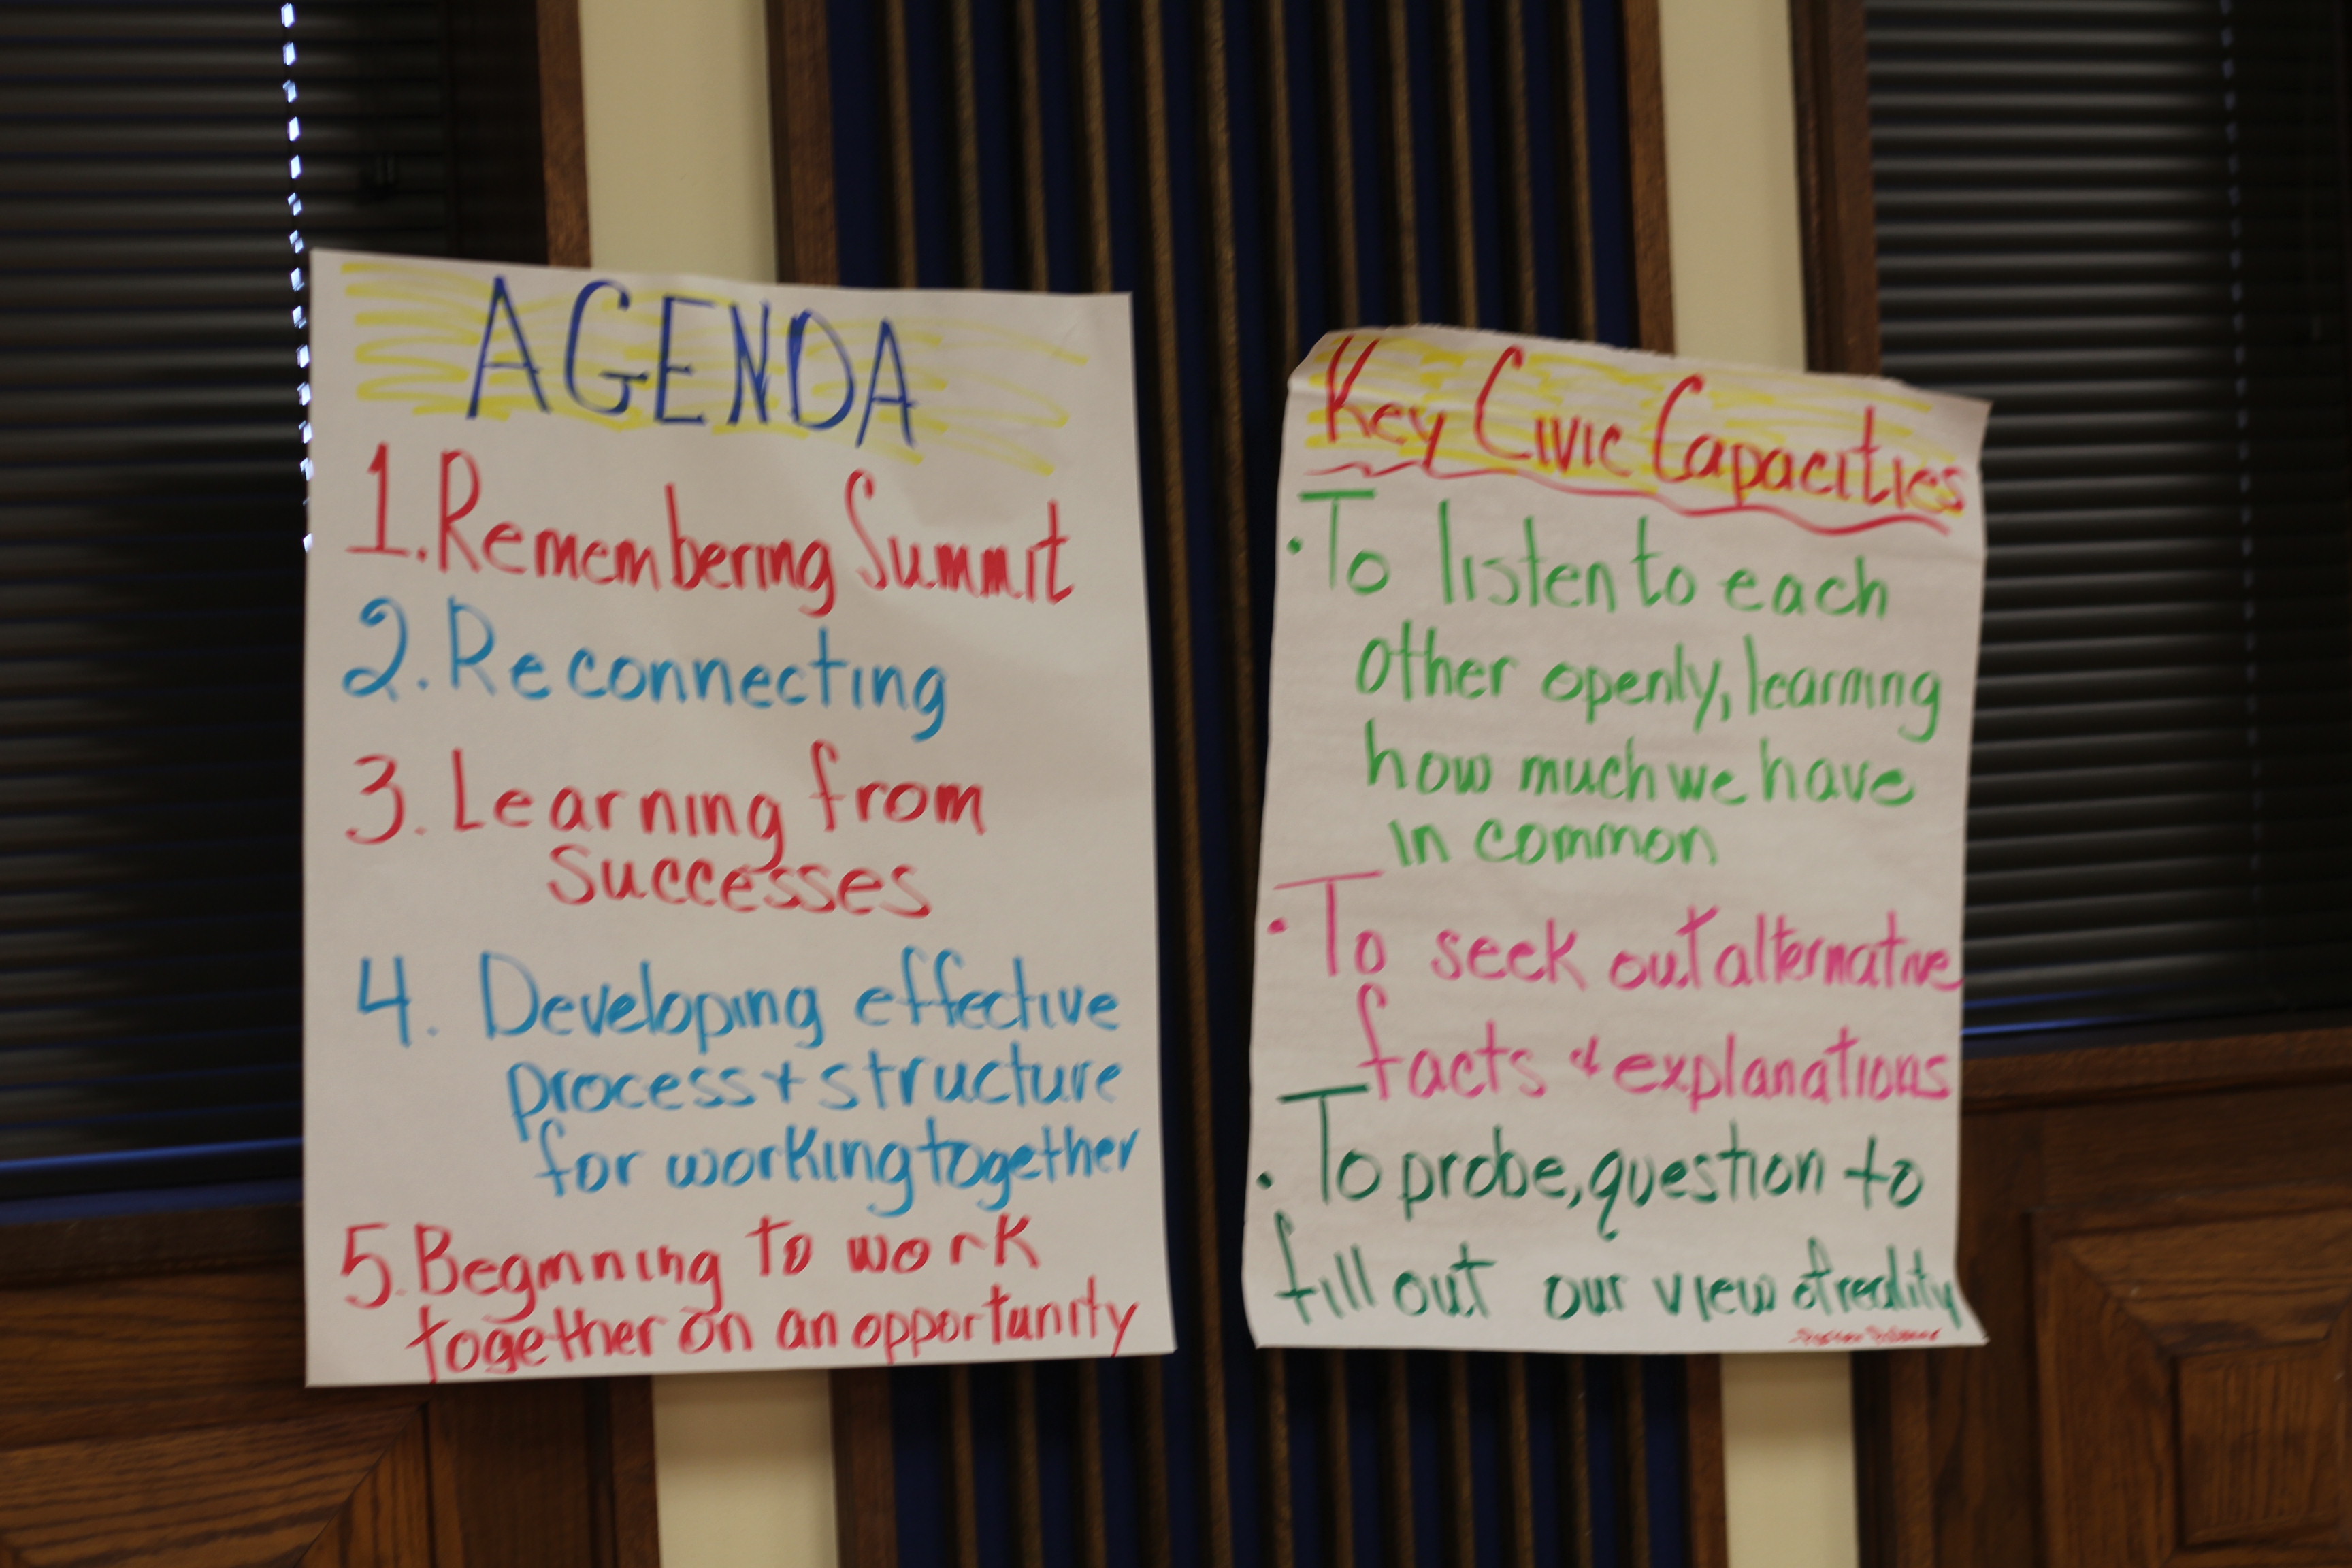 AGENDA
1. Remembering Summit
2. Reconnecting
3. Learning from
successes
4. Developing effective
process + structure
for working together
5. Beginning to work
together on an opportunity
Key Civic Capacities
• To listen to each
other openly, learning
how much we have
in common
• To seek out alternative
facts & explanations
• To probe, question to
fill out our view of reality